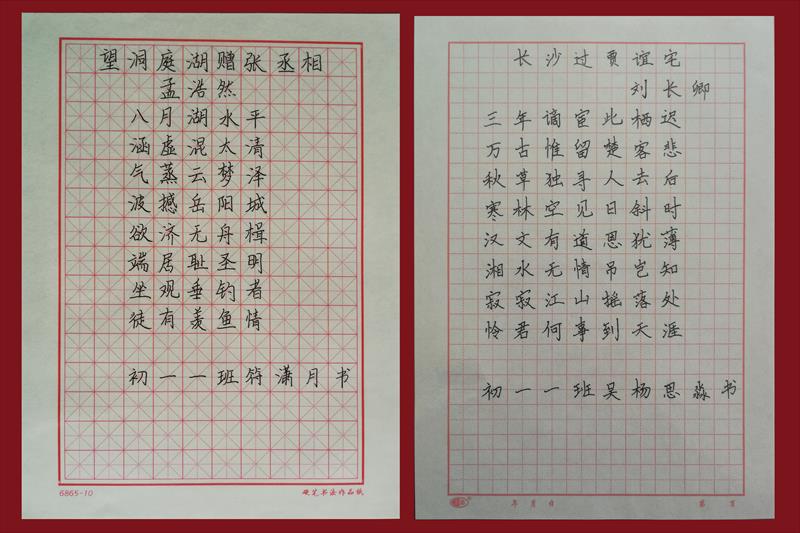 望洞庭湖赠张丞相
孟浩然
八月湖水平
涵虚混太清
气蒸云梦泽
波撼岳阳城
欲济无舟楫
端居耻圣明
坐观垂钓者
徒有羡鱼情
初一一班符潇月书
6865-10
硬笔书法作品纸
长沙过贾谊宅
刘长卿
三年谪宦此栖迟
万古惟留楚客悲
秋草独寻人去后
寒林空见日斜时
汉文有道恩犹薄
湘水无情吊岂知
寂寂江山摇落处
怜君何事到天涯
初一一班吴杨思淼书
年 月 日
第 页